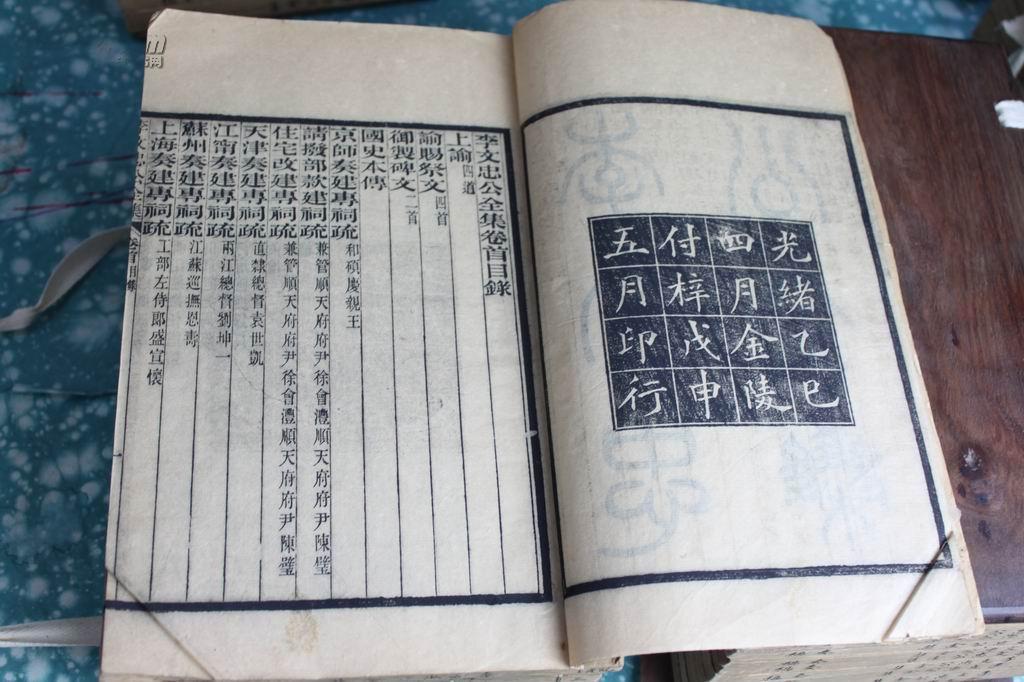 光緒乙巳
四月金陵
付梓戊申
五月印行
李文忠公全集卷首目錄
上諭四道
諭賜祭文四首
御製碑文二首
國史本傳
京師奏建專祠疏和碩慶親王
請撥部款建祠疏兼管順天府府尹徐會灃順天府府尹陳璧
住宅改建專祠疏兼管順天府府尹徐會灃順天府府尹陳璧
天津奏建專祠疏直隸總督袁世凱
江甯奏建專祠疏兩江總督劉坤一
蘇州奏建專祠疏江蘇巡撫恩壽
上海奏建專祠疏工部左侍郎盛宣懷